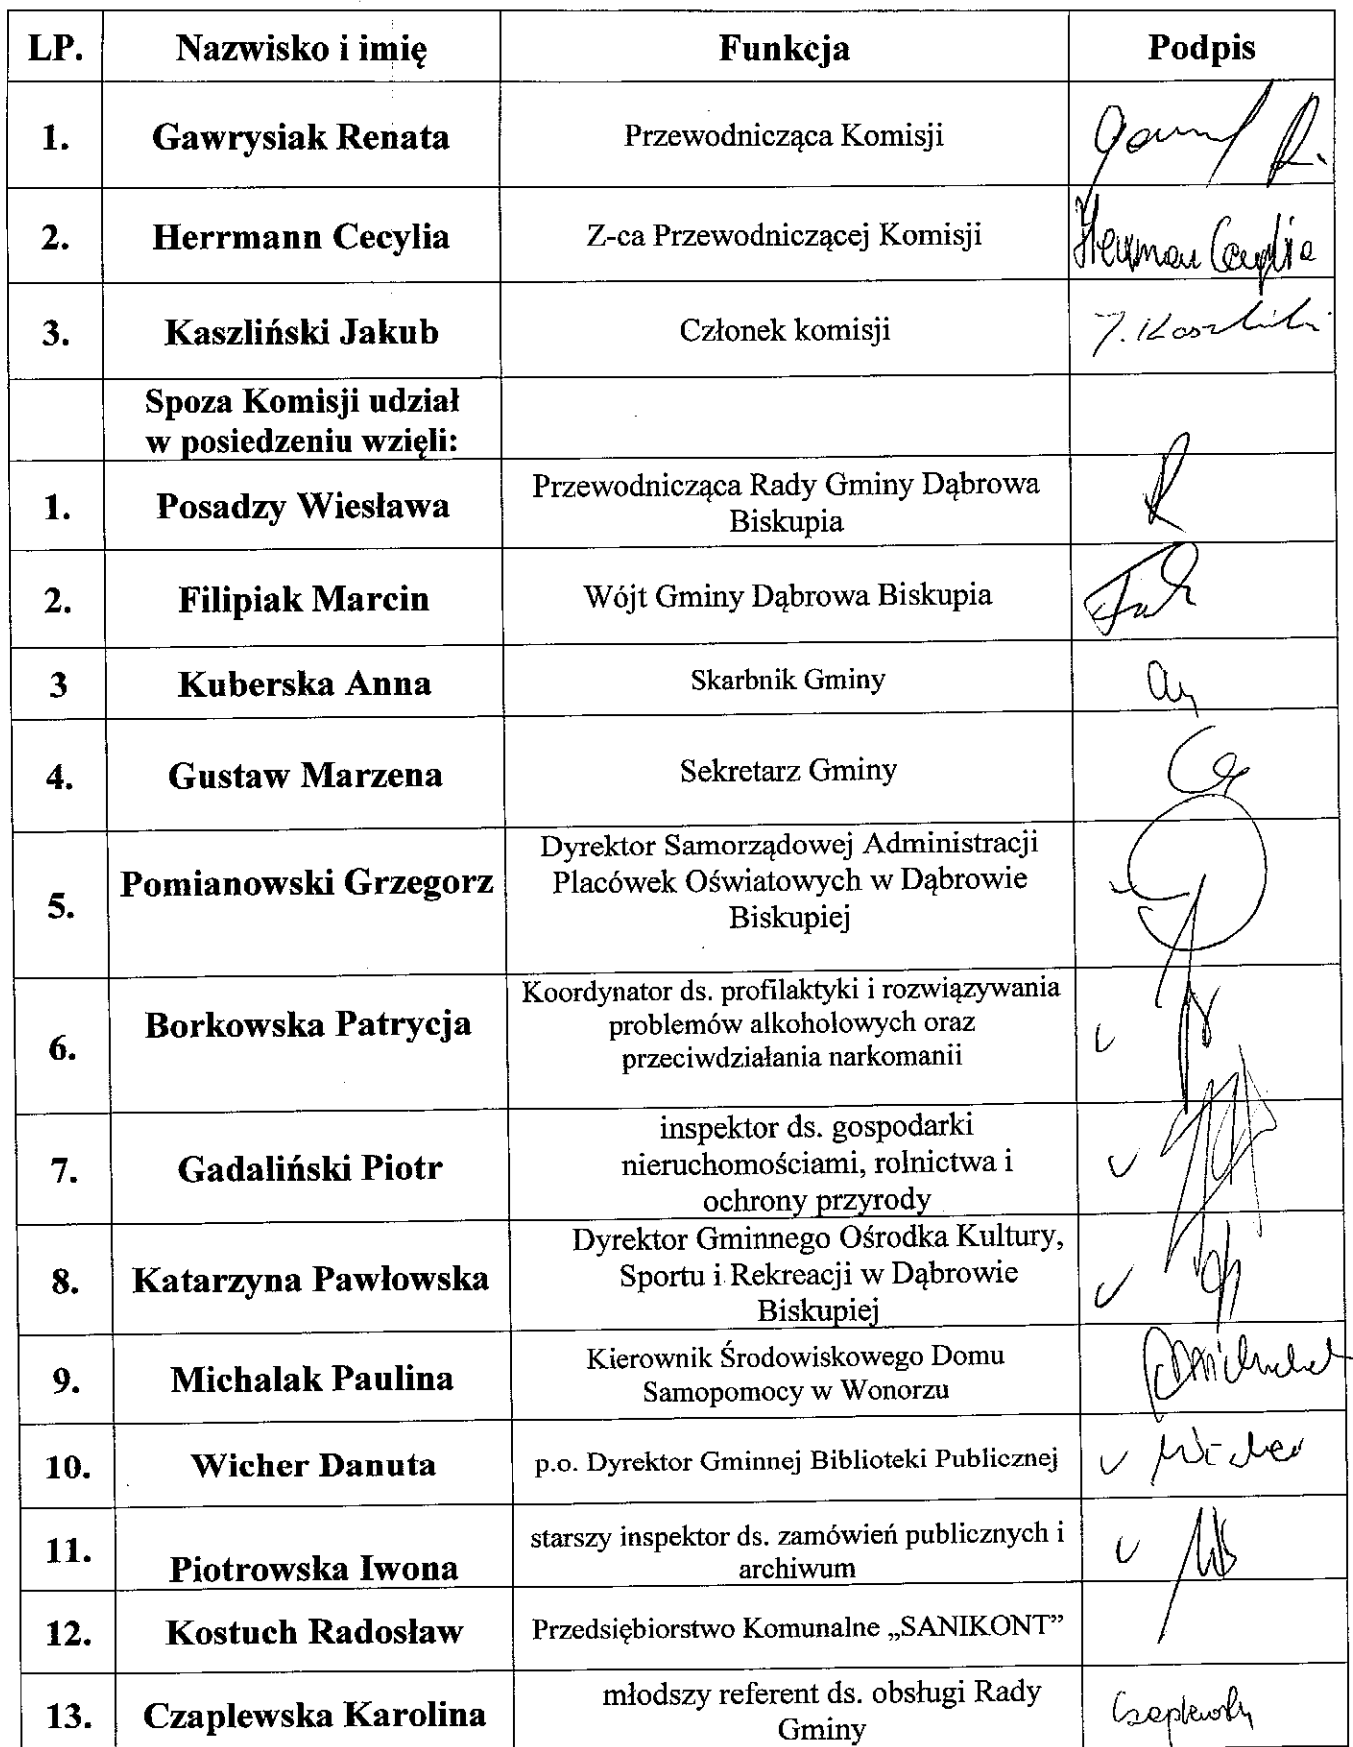 LP. Nazwisko i imię Funkcja Podpis
1. Gawrysiak Renata Przewodnicząca Komisji
2. Herrmann Cecylia Z-ca Przewodniczącej Komisji Herrman Cecylia
3. Kaszliński Jakub Członek komisji J. Kaszliński
Spoza Komisji udział
w posiedzeniu wzięli:
1. Posadzy Wiesława Przewodnicząca Rady Gminy Dąbrowa
Biskupia
2. Filipiak Marcin Wójt Gminy Dąbrowa Biskupia
3 Kuberska Anna Skarbnik Gminy
4. Gustaw Marzena Sekretarz Gminy
5. Pomianowski Grzegorz Dyrektor Samorządowej Administracji
Placówek Oświatowych w Dąbrowie
Biskupiej
6. Borkowska Patrycja Koordynator ds. profilaktyki i rozwiązywania
problemów alkoholowych oraz
przeciwdziałania narkomanii
7. Gadaliński Piotr inspektor ds. gospodarki
nieruchomościami, rolnictwa i
ochrony przyrody
8. Katarzyna Pawłowska Dyrektor Gminnego Ośrodka Kultury,
Sportu i Rekreacji w Dąbrowie
Biskupiej
9. Michalak Paulina Kierownik Środowiskowego Domu
Samopomocy w Wonorzu
10. Wicher Danuta p.o. Dyrektor Gminnej Biblioteki Publicznej Wicher
11. Piotrowska Iwona starszy inspektor ds. zamówień publicznych i
archiwum
12. Kostuch Radosław Przedsiębiorstwo Komunalne „SANIKONT”
13. Czaplewska Karolina młodszy referent ds. obsługi Rady
Gminy